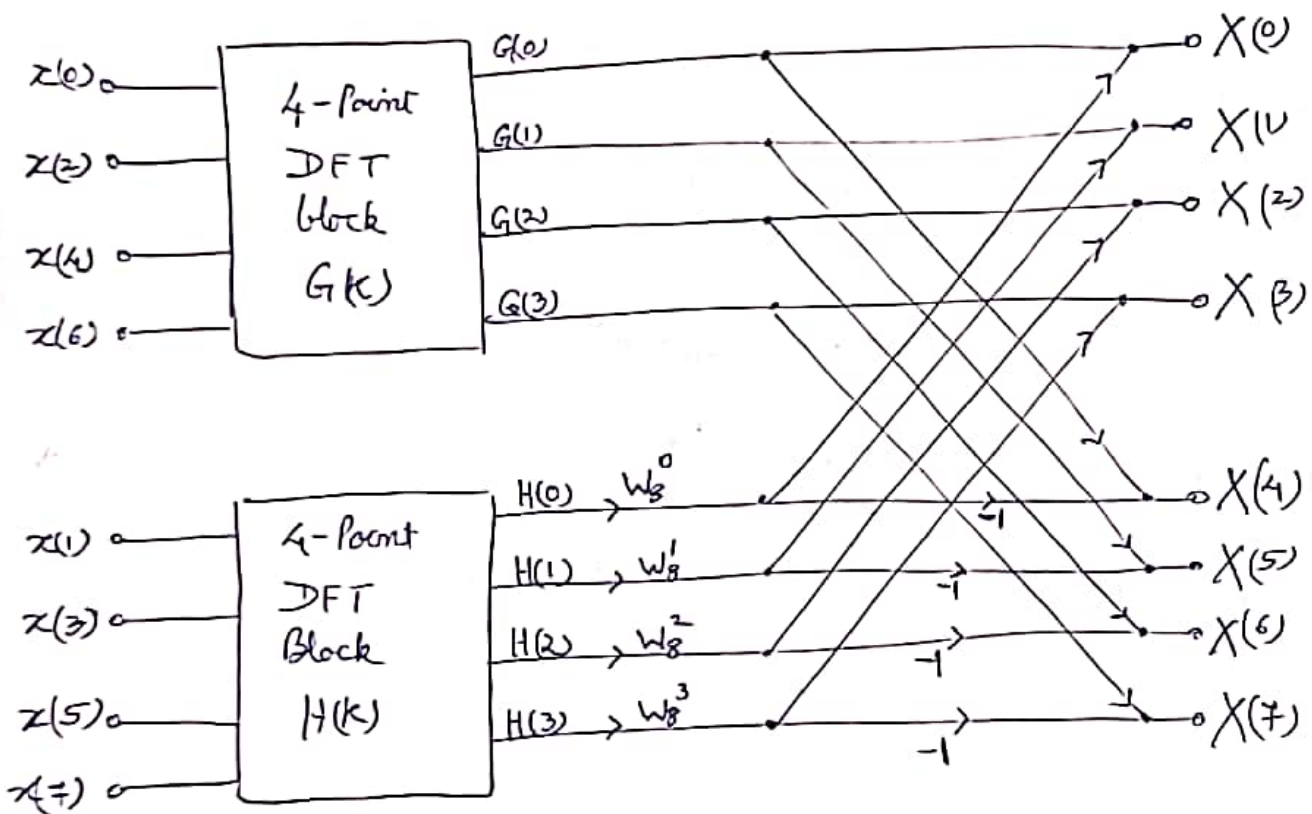 x(0)
x(2)
x(4)
x(6)
4-Point
DFT
block
G(K)
G(0)
G(1)
G(2)
G(3)
X(0)
X(1)
X(2)
X(3)
x(1)
x(3)
x(5)
x(7)
4-Point
DFT
Block
H(K)
H(0) W₈⁰
H(1) W₈¹
H(2) W₈²
H(3) W₈³
-1
-1
-1
-1
X(4)
X(5)
X(6)
X(7)